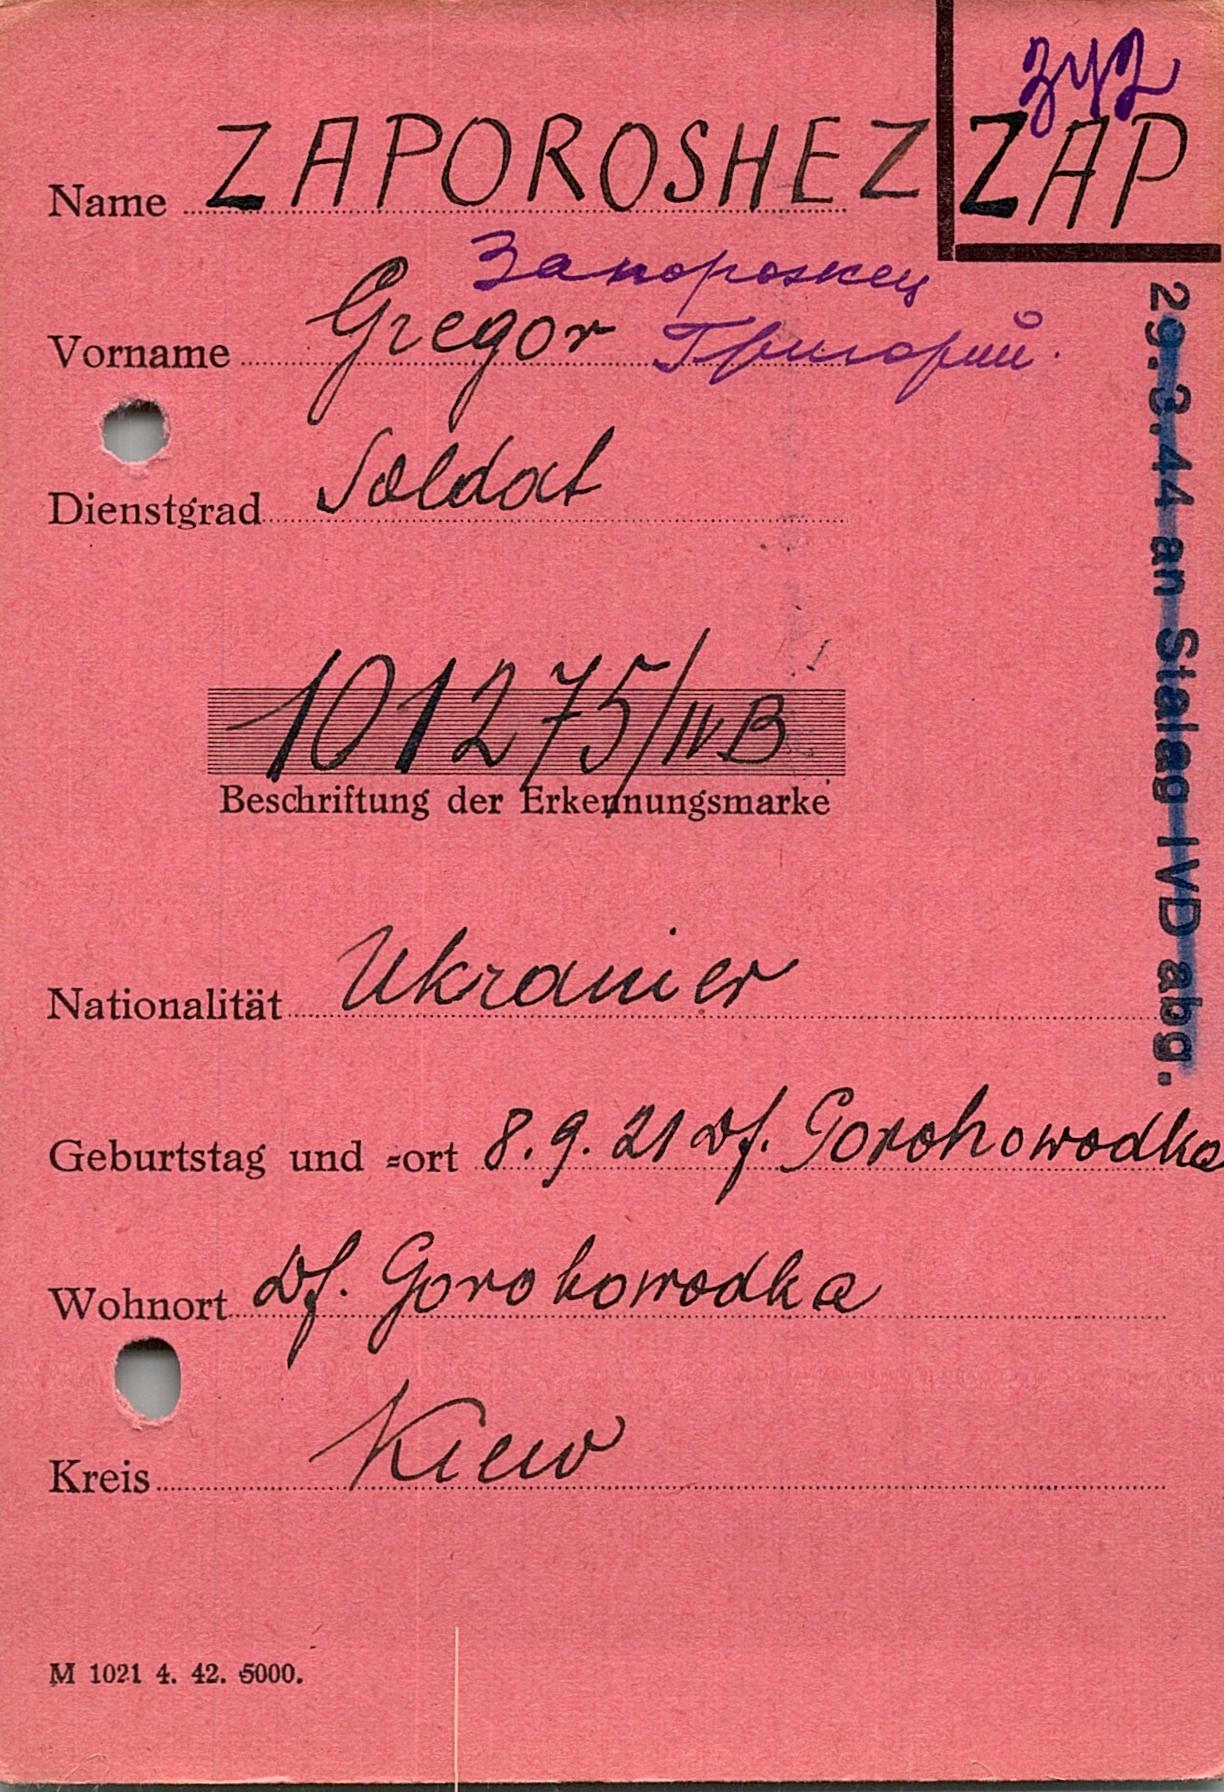 342
Name ZAPOROSHEZ ZAP
Запорожец
Vorname Gregor Григорий.
Dienstgrad Soldat
101275/IVB
Beschriftung der Erkennungsmarke
29.3.44 an Stalag IVD abg.
Nationalität Ukrainier
Geburtstag und =ort 8.9.21 Df. Gorohowodka
Wohnort Df. Gorohowodka
Kreis Kiew
M 1021 4. 42. 5000.